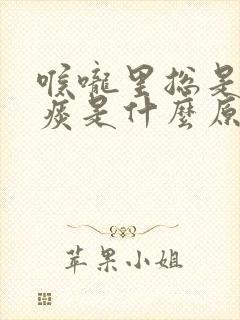 喉嚨里総是
痰是什麼原
苹果小姐